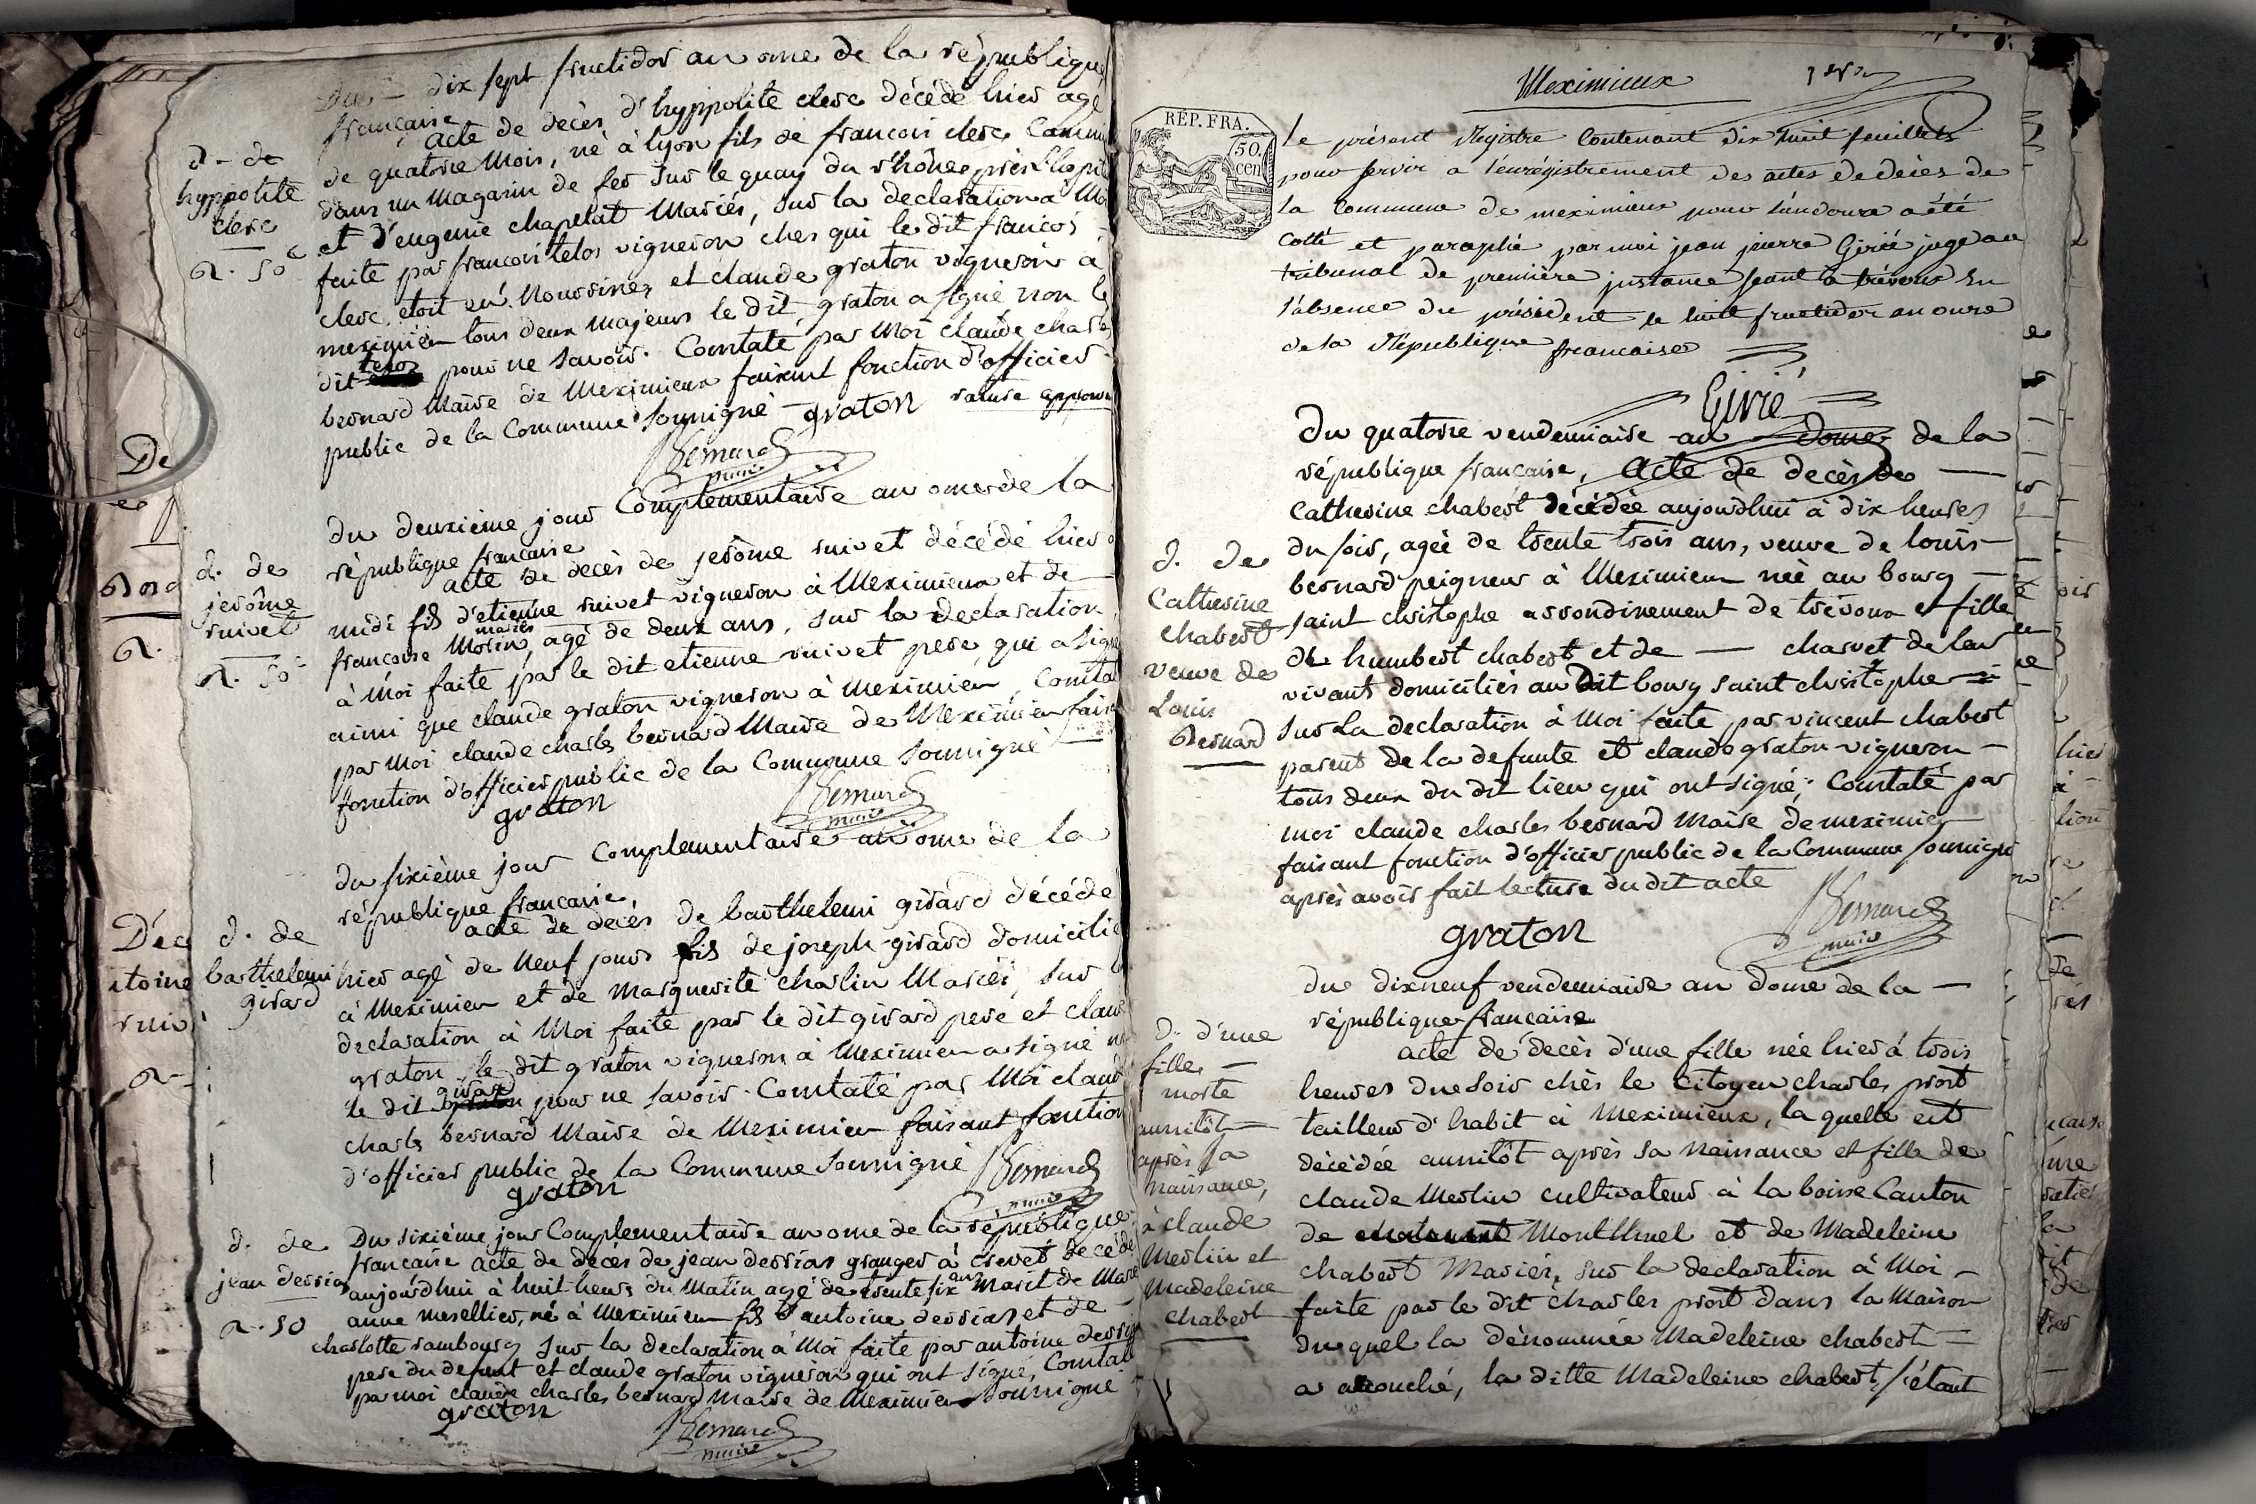 Du dix sept fructidor an onze de la république
francaise
acte de decès d'hyppolite clerc décédé hier agé
de quatorze Mois, né à lyon fils de francois clerc Commis
dans un Magazin de fer sur le quay du rhône, près l'hopital
et d'eugenie chapelat Mariés, sur la declaration a Moi
faite par francois telos vigneron ches qui le dit francois
clerc etoit en Nourrice, et claude graton vigneron à
meximieu tous deux Majeurs le dit graton a signé non le
dit telos pour ne savoir. Constaté par Moi claude charles
bernard Maire de Meximieux faisant fonction d'officier
public de la Commune soussigné graton rature approuvée
Bernard
maire
d. de
hyppolite
clerc
R. 50 c
du deuxième jour Complementaire an onze de la
république francaise
acte de decès de jerôme ruivet décédé hier à
midi fils d'etienne ruivet vigneron à Meximieux et de
francoise Morin mariés, agé de deux ans, sur la declaration
à Moi faite par le dit etienne ruivet pere, qui a signé
ainsi que claude graton vigneron à Meximieu, Constaté
par Moi claude charles bernard Maire de Meximieu faisant
fonction d'officier public de la Commune soussigné
graton
Bernard
maire
d. de
jerôme
ruivet
R. 50 c
du sixième jour Complementaire an onze de la
république francaise
acte de decès de barthelemi girard décédé
hier agé de Neuf jours fils de joseph girard domicilié
à Meximieu et de Marguerite charlin Mariés, sur la
declaration à Moi faite par le dit girard pere et claude
graton, le dit graton vigneron à Meximieu a signé non
le dit girard pour ne savoir. Constaté par Moi claude
charles bernard Maire de Meximieu faisant fonction
d'officier public de la Commune soussigné
graton
Bernard
maire
d. de
barthelemi
girard
Du sixième jour Complementaire an onze de la république
francaise acte de decès de jean derrias granger à crevet decédé
aujourd'hui à huit heures du Matin agé de trente six ans Marit de Marie
anne Merellier, né à Meximieu fils d'antoine derrias et de
charlotte rambourg sur la declaration à Moi faite par antoine derrias
pere du defunt et claude graton vigneron qui ont signé, Constaté
par moi claude charles bernard Maire de Meximieu soussigné
graton
Bernard
maire
d. de
jean derrias
R. 50
Meximieux
RÉP. FRA.
50.
cen
Le présent Régistre Contenant dix huit feuillets
pour servir a l'enrégistrement des actes de décès de
la Commune de meximieux pour l'an douze a été
cotté et paraphé par moi jean pierre Girié juge au
tribunal de première justance séant à trévoux En
l'absence du président le huit fructidor an onze
de la République francaise
Girié
Du quatorze vendemiaire an douze de la
république francaise, Acte de decès de
Catherine chabert décédée aujourdhui à dix heures
du soir, ageé de trente trois ans, veuve de louis
bernard peigneur à Meximieu neé au bourg
saint christophe arrondissement de trévoux et fille
de humbert chabert et de — charvet de leur
vivant domiciliés au Dit bourg saint christophe
sur La declaration à Moi faite par vincent chabert
parent de la defunte et claude graton vigneron
tous deux du dit lieu qui ont signé; Constaté par
moi claude charles bernard Maire de meximieu
faisant fonction d'officier public de la Commune soussigné
après avoir fait lecture du dit acte
graton
Bernard
maire
d. de
Catherine
chabert
veuve de
Louis
Bernard
du dixneuf vendemiaire an douze de la
république francaise
acte de decès d'une fille née hier à trois
heures du soir chès le Citoyen charles prost
tailleur d'habit à Meximieux, la quelle est
décédée aussitôt après sa Naissance et fille de
claude Merlin cultivateur à la boisse Canton
de Montlluel et de Madeleine
chabert Mariés, sur la declaration à Moi
faite par le dit charles prost dans la Maison
du quel la dénommée Madeleine chabert
a accouché, la ditte Madeleine chabert s'étant
d. d'une
fille
morte
aussitôt
après sa
naissance,
à claude
Merlin et
Madeleine
chabert